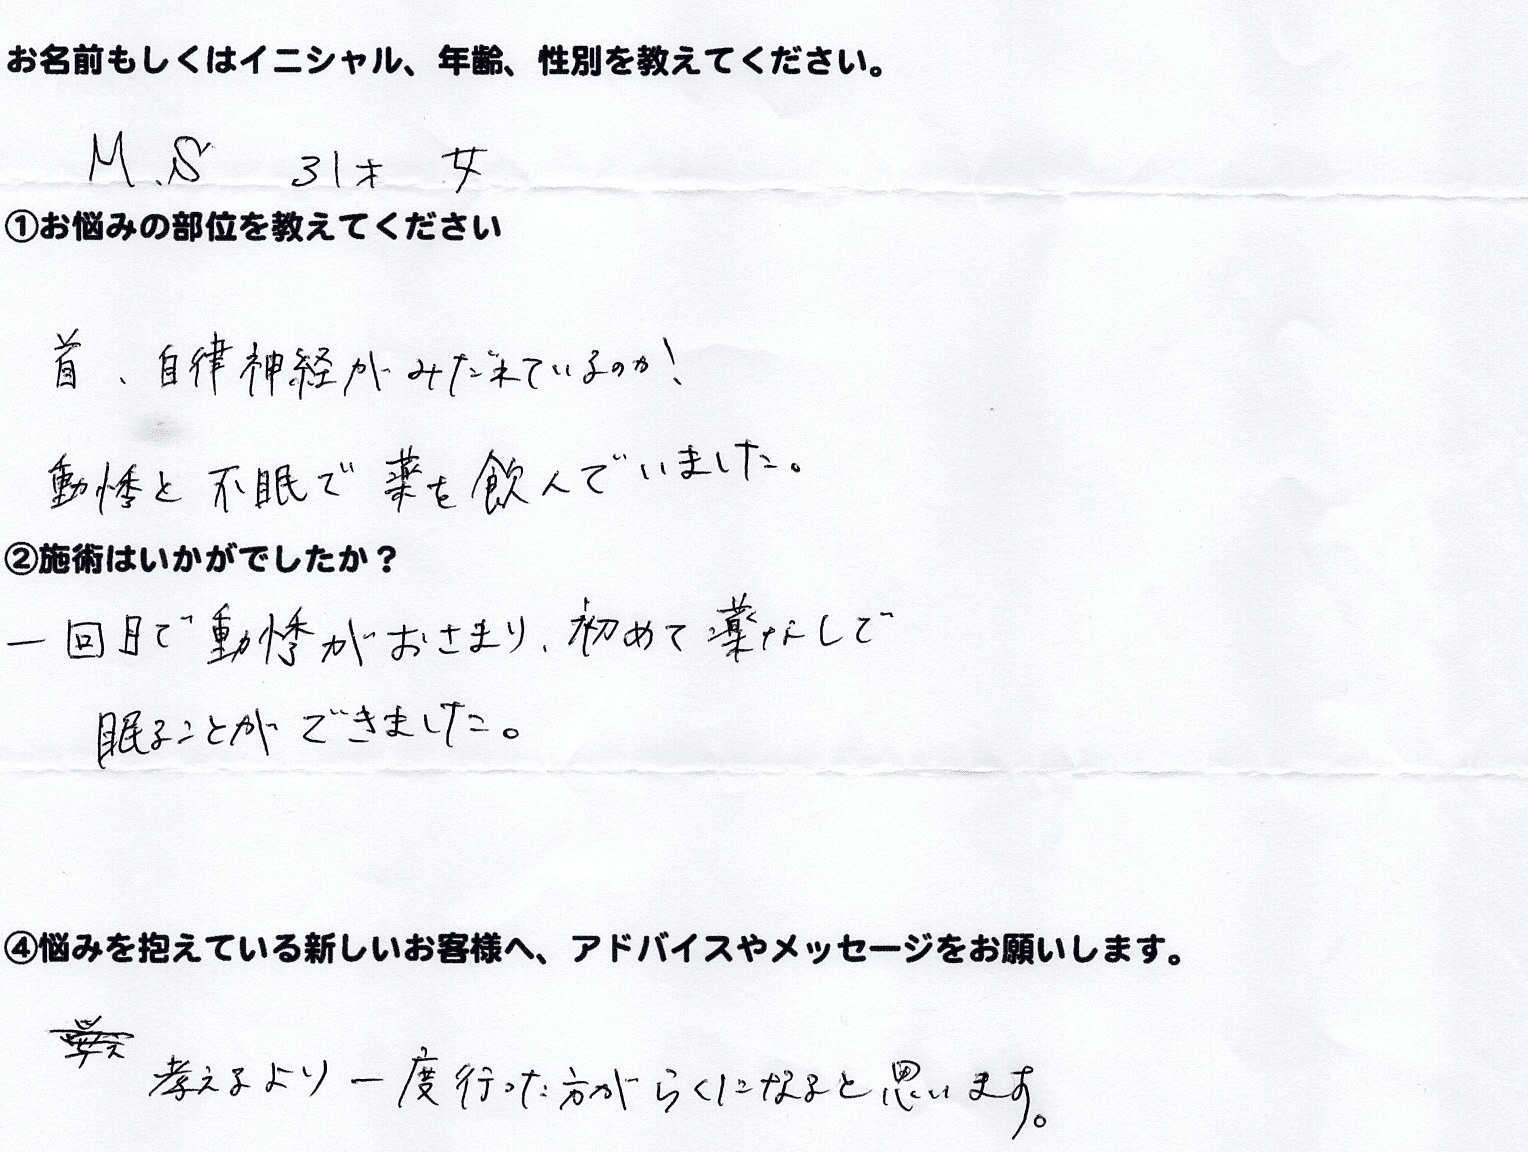 お名前もしくはイニシャル、年齢、性別を教えてください。
M.S 31才 女
①お悩みの部位を教えてください
首、自律神経がみだれているのか!
動悸と不眠で薬を飲んでいました。
②施術はいかがでしたか？
一回目で動悸がおさまり、初めて薬なしで
眠ることができました。
④悩みを抱えている新しいお客様へ、アドバイスやメッセージをお願いします。
考えるより一度行った方がらくになると思います。